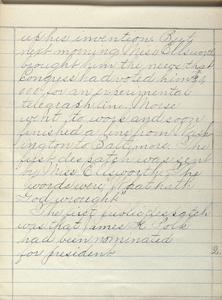 up his inventions. But
next morning Miss Ellsworth
brought him the news that
Congress had voted him $
000 for an experimental
telegraph line. Morse
went to work and soon
finished a line from Wash
ington to Baltimore. The
first despatch was sent
by Miss Ellsworth. The
words were "hath
God wrought"
The first public despatch
was that James K. Polk
had been nominated
for president